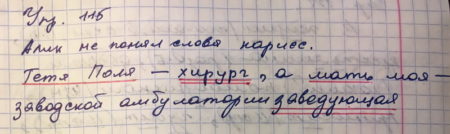 Упр. 115
Алик не понял слова нарцисс.
Тетя Поля — хирург, а мать моя —
заводской амбулатории заведующая